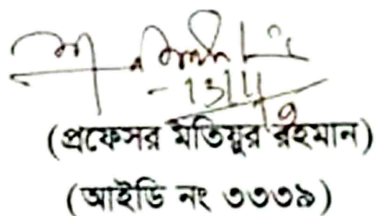 (প্রফেসর মতিয়ুর রহমান)
(আইডি নং ৩৩৩৯)